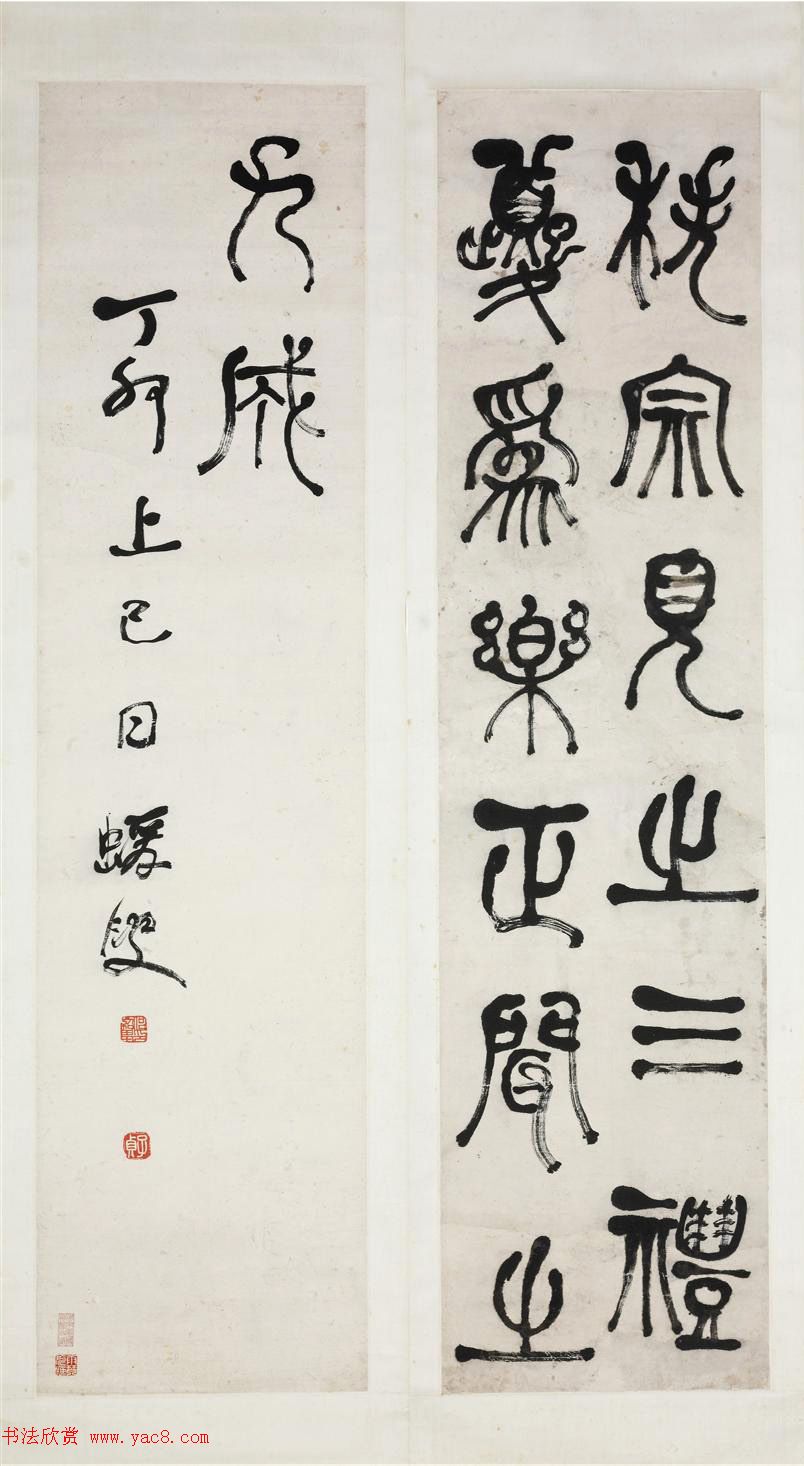 秩宗見之三禮
夔為樂正聞之
九成
丁卯上巳日蝯叟
子貞
书法欣赏 www.yac8.com